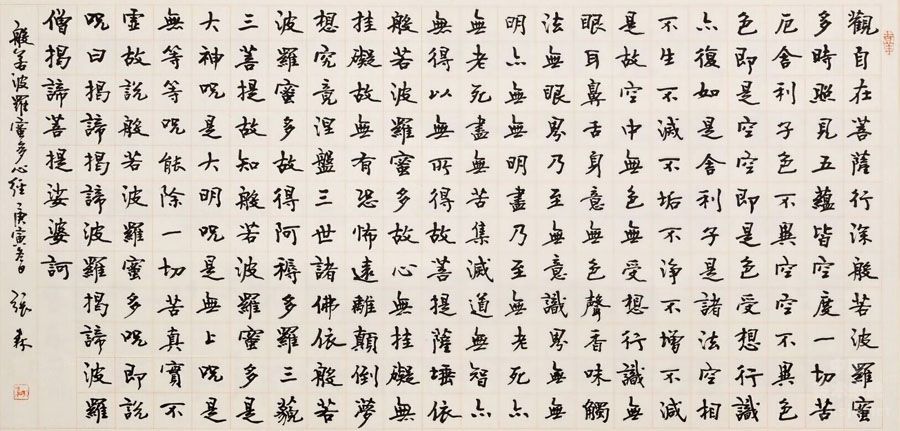 觀自在菩薩行深般若波羅蜜
多時照見五蘊皆空度一切苦
厄舍利子色不異空空不異色
色即是空空即是色受想行識
亦復如是舍利子是諸法空相
不生不滅不垢不淨不增不減
是故空中無色無受想行識無
眼耳鼻舌身意無色聲香味觸
法無眼界乃至無意識界無無
明亦無無明盡乃至無老死亦
無老死盡無苦集滅道無智亦
無得以無所得故菩提薩埵依
般若波羅蜜多故心無挂礙無
挂礙故無有恐怖遠離顛倒夢
想究竟涅盤三世諸佛依般若
波羅蜜多故得阿耨多羅三藐
三菩提故知般若波羅蜜多是
大神呪是大明呪是無上呪是
無等等呪能除一切苦真實不
虛故說般若波羅蜜多呪即說
呪曰揭諦揭諦波羅揭諦波羅
僧揭諦菩提娑婆訶
般若波羅蜜多心經 庚寅冬日 張